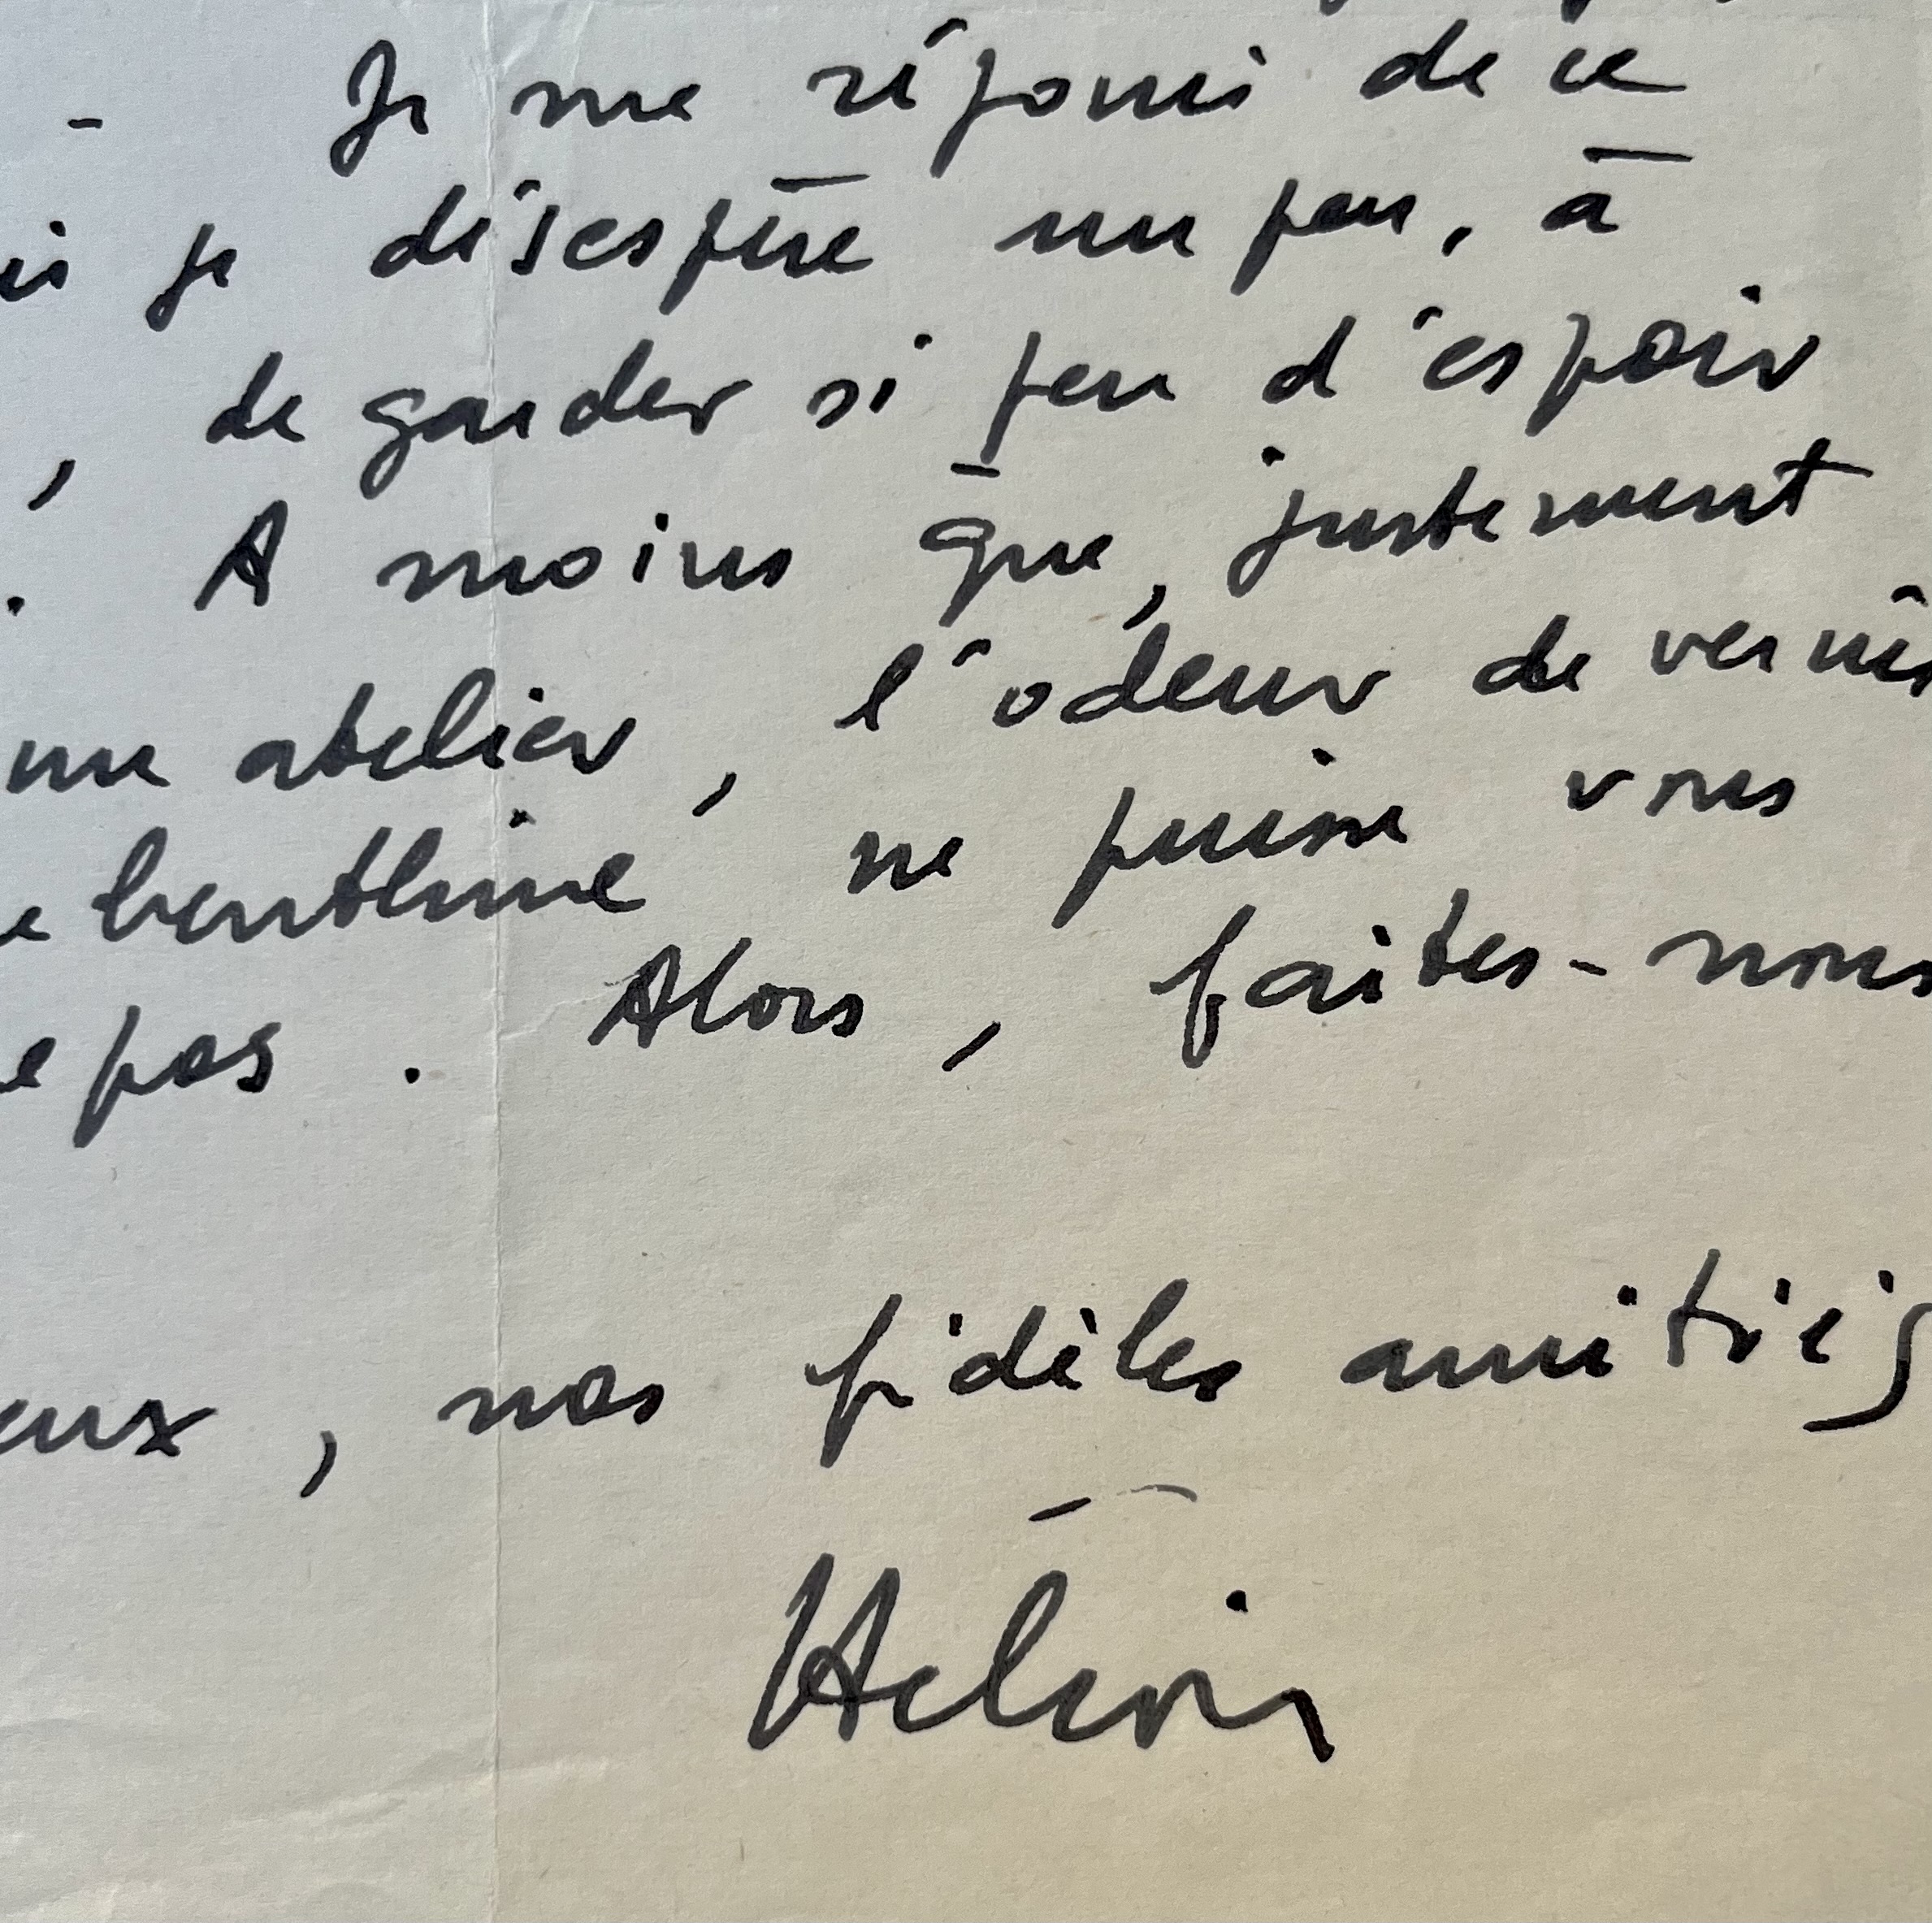 - Je me réjouis de ce
je désespère un peu, à
, de garder si peu d'espoir
. A moins que, justement
un atelier, l'odeur de vernis
benthine ne puisse vous
e pas. Alors, faites-nous
eux, nos fidèles amitiés
Hélion